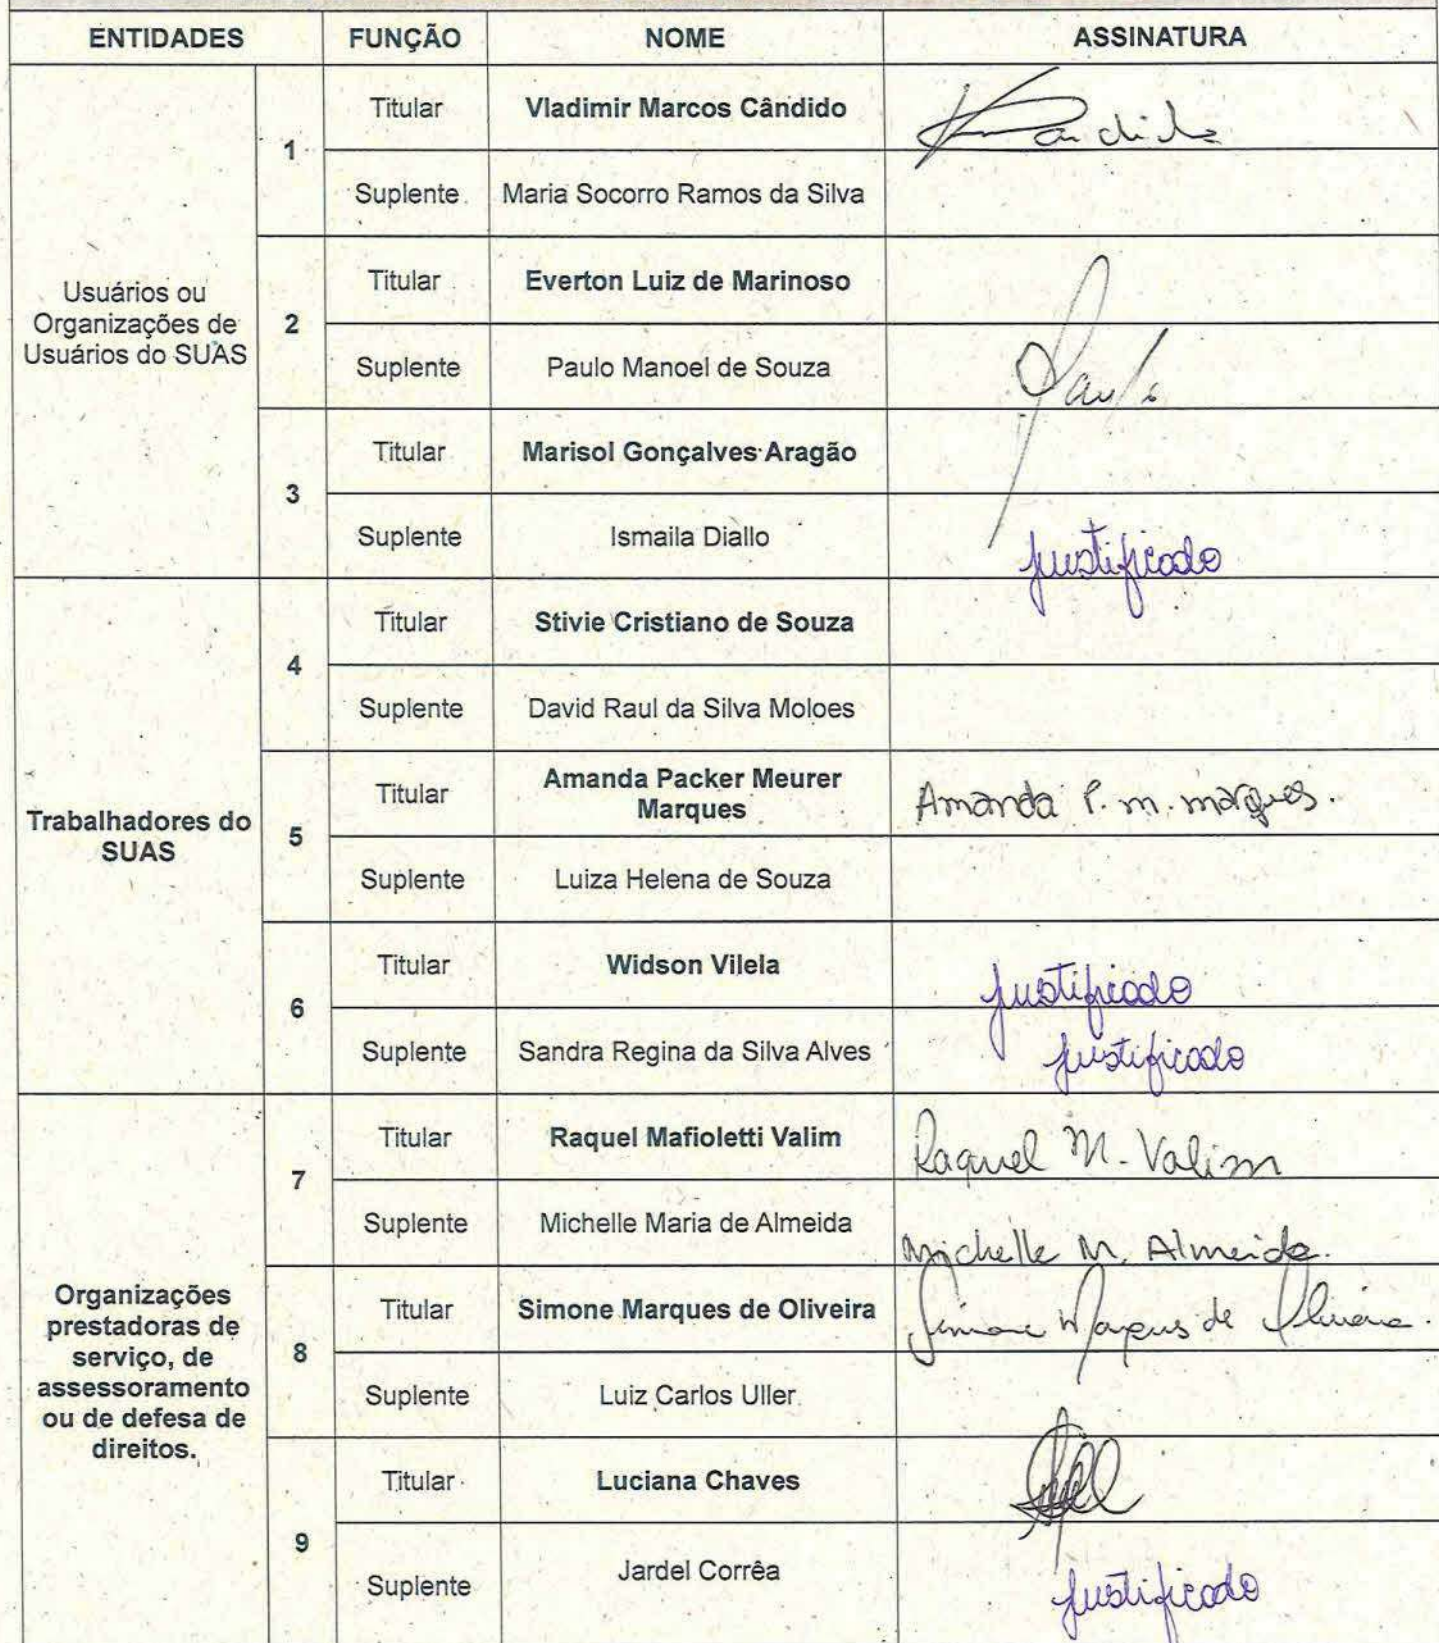 ENTIDADES FUNÇÃO NOME ASSINATURA
Usuários ou
Organizações de
Usuários do SUAS
1
Titular Vladimir Marcos Cândido
Suplente Maria Socorro Ramos da Silva
2
Titular Everton Luiz de Marinoso
Suplente Paulo Manoel de Souza Paulo
3
Titular Marisol Gonçalves Aragão
Suplente Ismaila Diallo justificado
Trabalhadores do
SUAS
4
Titular Stivie Cristiano de Souza
Suplente David Raul da Silva Moloes
5
Titular Amanda Packer Meurer
Marques Amanda P. m. marques.
Suplente Luiza Helena de Souza
6
Titular Widson Vilela justificado
Suplente Sandra Regina da Silva Alves justificado
Organizações
prestadoras de
serviço, de
assessoramento
ou de defesa de
direitos.
7
Titular Raquel Mafioletti Valim Raquel M. Valim
Suplente Michelle Maria de Almeida Michelle M. Almeida.
8
Titular Simone Marques de Oliveira Simone Marques de Oliveira.
Suplente Luiz Carlos Uller
9
Titular Luciana Chaves
Suplente Jardel Corrêa justificado